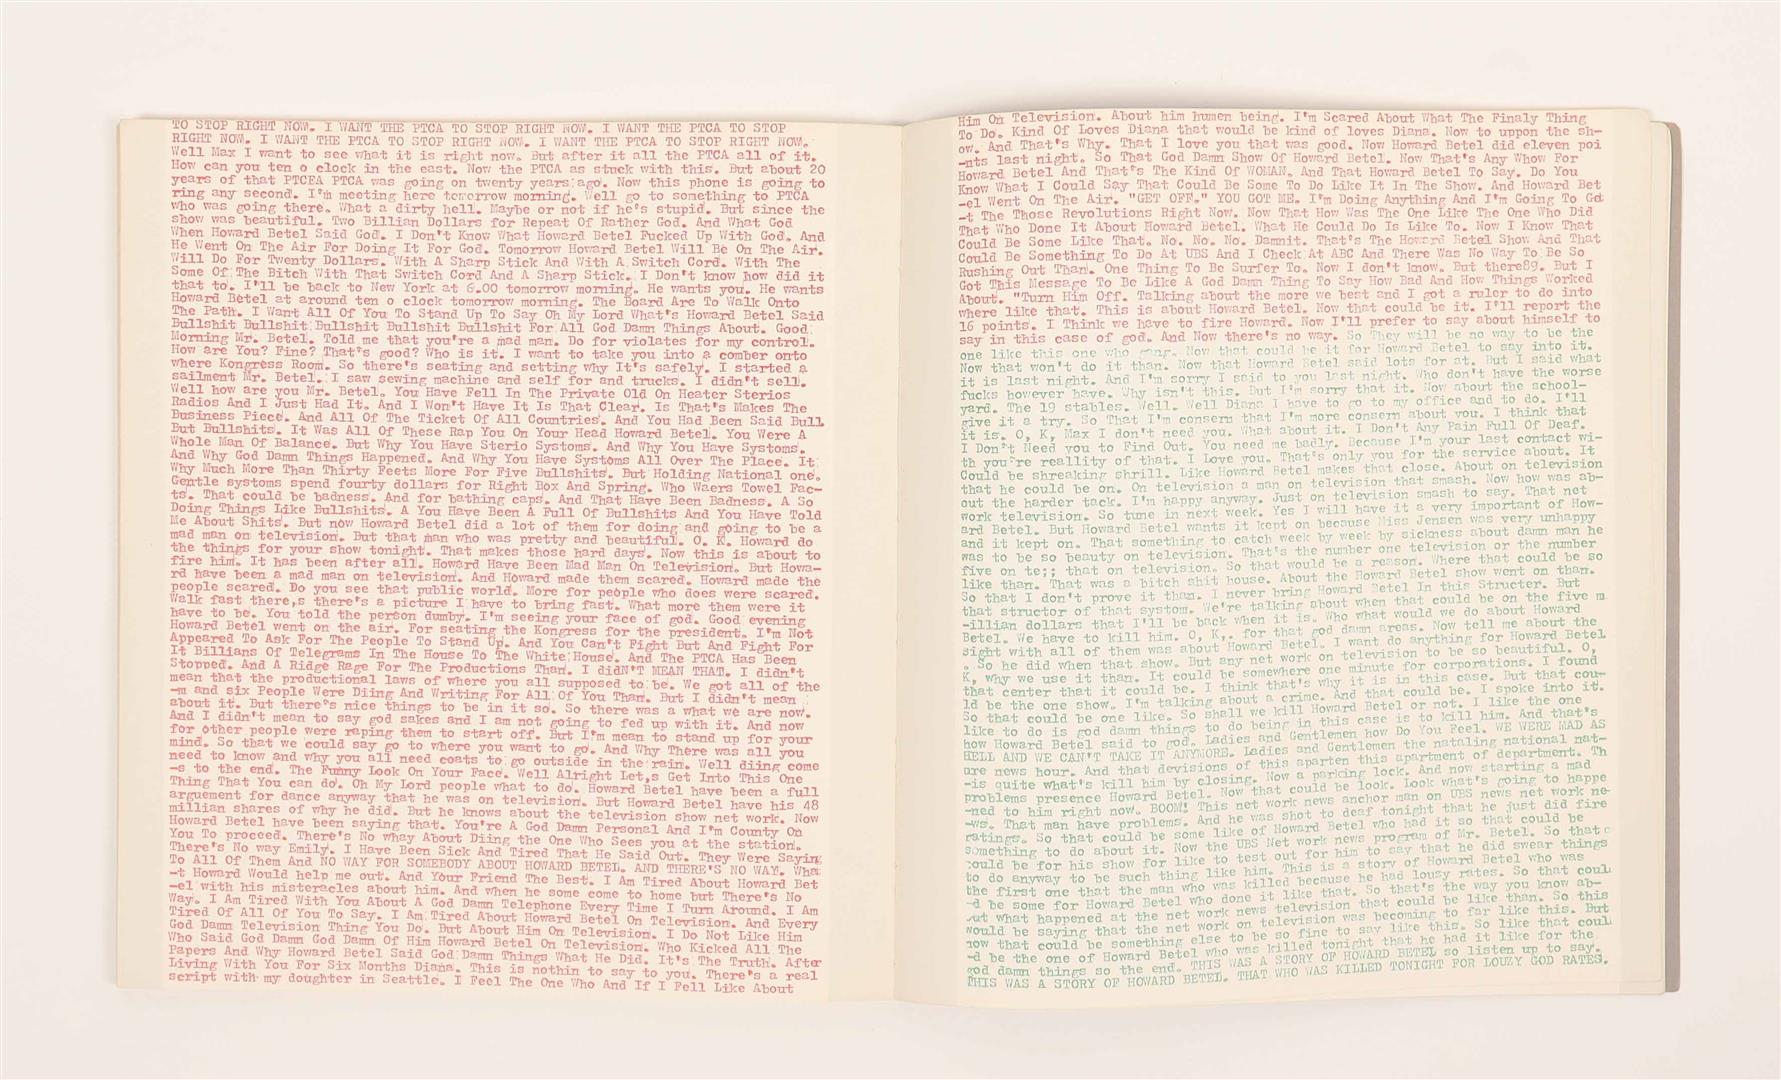 TO STOP RIGHT NOW. I WANT THE PTCA TO STOP RIGHT NOW. I WANT THE PTCA TO STOP
RIGHT NOW. I WANT THE PTCA TO STOP RIGHT NOW. I WANT THE PTCA TO STOP RIGHT NOW.
Well Max I want to see what it is right now. But after it all the PTCA all of it.
How can you ten o clock in the east. Now the PTCA as stuck with this. But about 20
years of that PTCEA PTCA was going on twenty years ago. Now this phone is going to
ring any second. I'm meeting here tomorrow morning. Well go to something to PTCA
who was going there. What a dirty hell. Maybe or not if he's stupid. But since the
show was beautiful. Two Billian Dollars for Repeat Of Rather God. And What God
When Howard Betel Said God. I Don't Know What Howard Betel Fucked Up With God. And
He Went On The Air For Doing It For God. Tomorrow Howard Betel Will Be On The Air.
Will Do For Twenty Dollars. With A Sharp Stick And With A Switch Cord. With The
Some Of The Bitch With That Switch Cord And A Sharp Stick. I Don't know how did it
that to. I'll be back to New York at 6.00 tomorrow morning. He wants you. He wants
Howard Betel at around ten o clock tomorrow morning. The Board Are To Walk Onto
The Path. I Want All Of You To Stand Up To Say Oh My Lord What's Howard Betel Said
Bullshit Bullshit Bullshit Bullshit Bullshit For All God Damn Things About. Good
Morning Mr. Betel. Told me that you're a mad man. Do for violates for my control.
How are You? Fine? That's good? Who is it. I want to take you into a comber onto
where Kongress Room. So there's seating and setting why It's safely. I started a
sailment Mr. Betel. I saw sewing machine and self for and trucks. I didn't sell.
Well how are you Mr. Betel. You Have Fell In The Private Old On Heater Sterios
Radios And I Just Had It. And I Won't Have It Is That Clear. Is That's Makes The
Business Piece. And All Of The Ticket Of All Countries. And You Had Been Said Bull
But Bullshits. It Was All Of These Rap You On Your Head Howard Betel. You Were A
Whole Man Of Balance. But Why You Have Sterio Systoms. And Why You Have Systoms.
And Why God Damn Things Happened. And Why You Have Systoms All Over The Place. It
Why Much More Than Thirty Feets More For Five Bullshits. But Holding National one.
Gentle systoms spend fourty dollars for Right Box And Spring. Who Waers Towel Fac-
ts. That could be badness. And for bathing caps. And That Have Been Badness. A So
Doing Things Like Bullshits. A You Have Been A Full Of Bullshits And You Have Told
Me About Shits. But now Howard Betel did a lot of them for doing and going to be a
mad man on television. But that man who was pretty and beautiful. O. K. Howard do
the things for your show tonight. That makes those hard days. Now this is about to
fire him. It has been after all. Howard Have Been Mad Man On Television. But Howa-
rd have been a mad man on television. And Howard made them scared. Howard made the
people scared. Do you see that public world. More for people who does were scared.
Walk fast there,s there's a picture I have to bring fast. What more them were it
have to be. You told the person dumby. I'm seeing your face of god. Good evening
Howard Betel went on the air. For seating the Kongress for the president. I'm Not
Appeared To Ask For The People To Stand Up. And You Can't Fight But And Fight For
It Billians Of Telegrams In The House To The White House. And The PTCA Has Been
Stopped. And A Ridge Rage For The Productions Than. I didN'T MEAN THAT. I didn't
mean that the productional laws of where you all supposed to be. We got all of the
-m and six People Were Diing And Writing For All Of You Than. But I didn't mean
about it. But there's nice things to be in it so. So there was a what we are now.
And I didn't mean to say god sakes and I am not going to fed up with it. And now
for other people were raping them to start off. But I'm mean to stand up for your
mind. So that we could say go to where you want to go. And Why There was all you
need to know and why you all need coats to go outside in the rain. Well diing come
-s to the end. The Funny Look On Your Face. Well Alright Let,s Get Into This One
Thing That You can do. Oh My Lord people what to do. Howard Betel have been a full
arguement for dance anyway that he was on television. But Howard Betel have his 48
millian shares of why he did. But he knows about the television show net work. Now
Howard Betel have been saying that. You're A God Damn Personal And I'm County On
You To proceed. There's No whay About Diing the One Who Sees you at the station.
There's No way Emily. I Have Been Sick And Tired That He Said Out. They Were Saying
To All Of Them And NO WAY FOR SOMEBODY ABOUT HOWARD BETEL. AND THERE'S NO WAY. Wha
-t Howard Would help me out. And Your Friend The Best. I Am Tired About Howard Bet
-el with his misteracles about him. And when he some come to home but There's No
Way. I Am Tired With You About A God Damn Telephone Every Time I Turn Around. I Am
Tired Of All Of You To Say. I Am Tired About Howard Betel On Television. And Every
God Damn Television Thing You Do. But About Him On Television. I Do Not Like Him
Who Said God Damn God Damn Of Him Howard Betel On Television. Who Kicked All The
Papers And Why Howard Betel Said God Damn Things What He Did. It's The Truth. After
Living With You For Six Months Diana. This is nothin to say to you. There's a real
script with my doughter in Seattle. I Feel The One Who And If I Fell Like About
Him On Television. About him humen being. I'm Scared About What The Finaly Thing
To Do. Kind Of Loves Diana that would be kind of loves Diana. Now to uppon the sh-
ow. And That's Why. That I love you that was good. Now Howard Betel did eleven poi
-nts last night. So That God Damn Show Of Howard Betel. Now That's Any Whow For
Howard Betel And That's The Kind Of WOMAN. And That Howard Betel To Say. Do You
Know What I Could Say That Could Be Some To Do Like It In The Show. And Howard Bet
-el Went On The Air. "GET OFF." YOU GOT ME. I'm Doing Anything And I'm Going To Ge
-t The Those Revolutions Right Now. Now That How Was The One Like The One Who Did
That Who Done It About Howard Betel. What He Could Do Is Like To. Now I Know That
Could Be Some Like That. No. No. No. Damnit. That's The Howard Betel Show And That
Could Be Something To Do At UBS And I Check At ABC And There Was No Way To Be So
Rushing Out Than. One Thing To Be Surfer To. Now I don't know. But there89. But I
Got This Message To Be Like A God Damn Thing To Say How Bad And How Things Worked
About. "Turn Him Off. Talking about the more we best and I got a ruler to do into
where like that. This is about Howard Betel. Now that could be it. I'll report the
16 points. I Think we have to fire Howard. Now I'll prefer to say about himself to
say in this case of god. And Now there's no way. So They will be no way to be the
one like this one who gang. Now that could be it for Howard Betel to say into it.
Now that won't do it than. Now that Howard Betel said lots for at. But I said what
it is last night. And I'm sorry I said to you last night. Who don't have the worse
fucks however have. Why isn't this. But I'm sorry that it. Now about the school-
yard. The 19 stables. Well. Well Diana I have to go to my office and to do. I'll
give it a try. So That I'm consern that I'm more consern about you. I think that
it is. O, K, Max I don't need you. What about it. I Don't Any Pain Full Of Deaf.
I Don't Need you to Find Out. You need me badly. Because I'm your last contact wi-
th you're reallity of that. I Love you. That's only you for the service about. It
Could be shreaking shrill. Like Howard Betel makes that close. About on television
that he could be on. On television a man on television that smash. Now how was ab-
out the harder tack. I'm happy anyway. Just on television smash to say. That net
work television. So tune in next week. Yes I will have it a very important of How-
ard Betel. But Howard Betel wants it kept on because Miss Jensen was very unhappy
and it kept on. That something to catch week by week by sickness about damn man he
was to be so beauty on television. That's the number one television or the number
five on te;; that on television. So that would be a reason. Where that could be so
like than. That was a bitch shit house. About the Howard Betel show went on than.
So that I don't prove it than. I never bring Howard Betel In this Structer. But
that structor of that systom. We're talking about when that could be on the five m
-illian dollars that I'll be back when it is. Who what would we do about Howard
Betel. We have to kill him. O, K,. for that god damn areas. Now tell me about the
sight with all of them was about Howard Betel. I want do anything for Howard Betel
. So he did when that show. But any net work on television to be so beautiful. O,
K, why we use it than. It could be somewhere one minute for corporations. I found
that center that it could be. I think that's why it is in this case. But that cou-
ld be the one show. I'm talking about a crime. And that could be. I spoke into it.
So that could be one like. So shall we kill Howard Betel or not. I like the one
like to do is god damn things to do being in this case is to kill him. And that's
how Howard Betel said to god. Ladies and Gentlemen how Do You Feel. WE WERE MAD AS
HELL AND WE CAN'T TAKE IT ANYMORE. Ladies and Gentlemen the nataling national nat-
are news hour. And that devisions of this aparten this apartment of department. Th
-is quite what's kill him by closing. Now a parking lock. And now starting a mad
problems presence Howard Betel. Now that could be look. Look what's going to happe
-ned to him right now. BOOM! This net work news anchor man on UBS news net work ne-
-ws. That man have problems. And he was shot to deaf tonight that he just did fire
ratings. So that could be some like of Howard Betel who had it so that could be
something to do about it. Now the UBS Net work news program of Mr. Betel. So that
could be for his show for like to test out for him to say that he did swear things
to do anyway to be such thing like him. This is a story of Howard Betel who was
the first one that the man who was killed because he had lousy rates. So that coul
-d be some for Howard Betel who done it like that. So that's the way you know ab-
out what happened at the net work news television that could be like than. So this
would be saying that the net work on television was becoming to far like this. But
now that could be something else to be so fine to say like this. So like that coul
-d be the one of Howard Betel who was killed tonight that he had it like for the
god damn things so the end. THIS WAS A STORY OF HOWARD BETEL so listen up to say.
THIS WAS A STORY OF HOWARD BETEL. THAT WHO WAS KILLED TONIGHT FOR LOUZY GOD RATES.